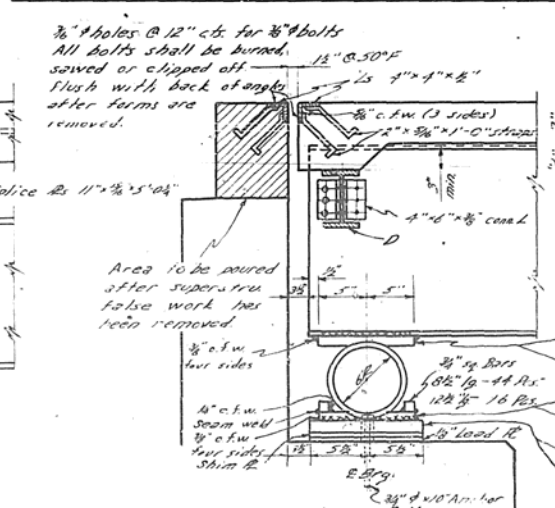 holes @ 12" cts. for bolts
All bolts shall be burned,
sawed or clipped off
flush with back of angles
after forms are
removed.
@ 50°F
Ls 4" x 4" x ½"
c.f.w. (3 sides)
2" x 5/16" x 1'-0" straps
min.
4" x 6" x 3/8" conn. L
D
Area to be poured
after superstru.
false work has
been removed.
1½"
3½"
5"
5"
c.f.w.
four sides
¾" sq. Bars
8½" lg - 44 Pcs.
12½" lg - 16 Pcs.
c.f.w.
seam weld
c.f.w.
four sides
Shim PL
Lead PL
5½"
5½"
Brg.
¾" φ x 10" Anchor